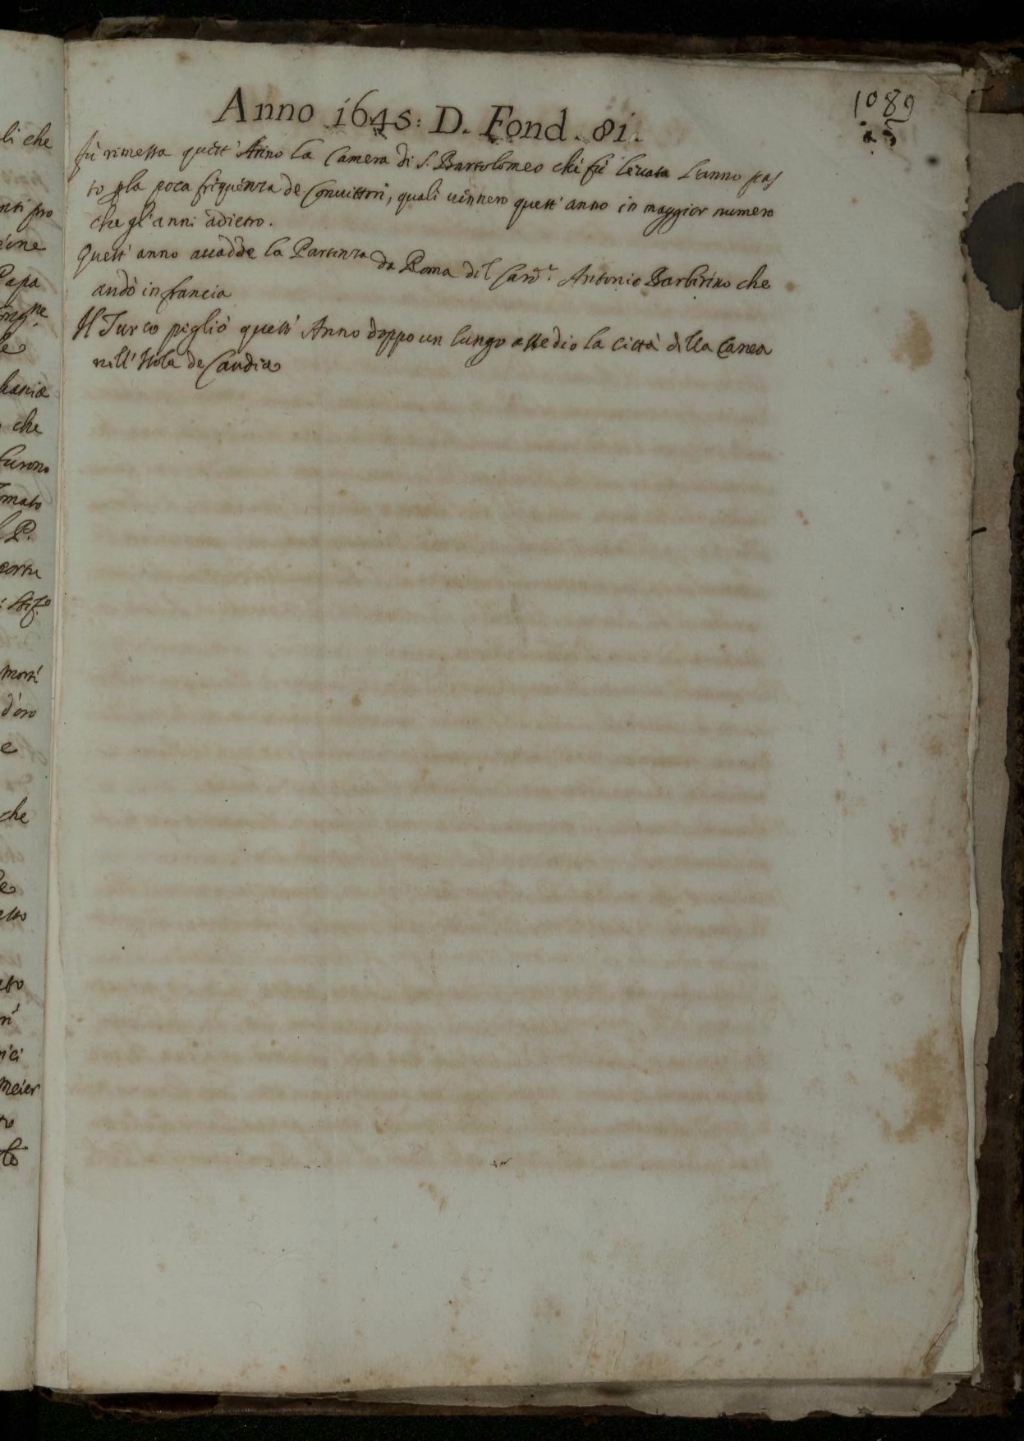 1089
Anno 1645: D. Fond. 81.
fù rimessa quest' Anno la Camera di S. Bartolomeo che fù levata l'anno pas
to p la poca frequenza de Convittori, quali vennero quest' anno in maggior numero
che gl'anni adietro.
Quest' anno accadde la Partenza da Roma del Card.l Antonio Barberino che
andò in francia
Il Turco pigliò quest' Anno doppo un lungo assedio la città della Canea
nell' Isola de Candia
li che
nti pro
Papa
che
furono
P.
morti
d'oro
e
che
meier